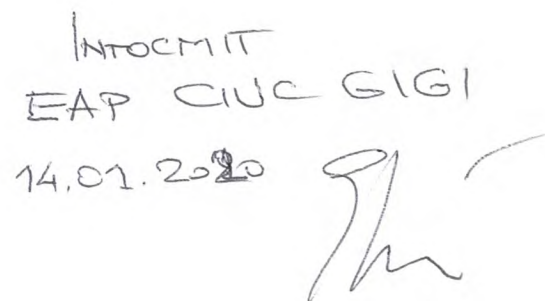 INTOCMIT
EAP CIUC GIGI
14.01.2020